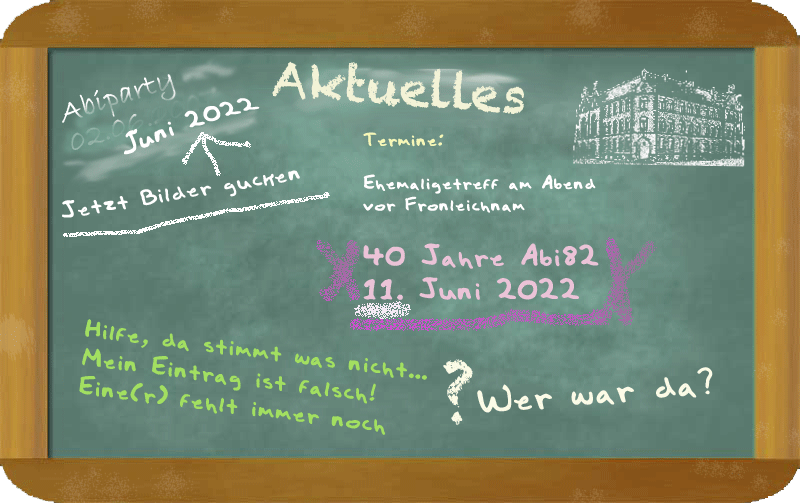 Aktuelles
Abiparty
02.06.
Juni 2022
Jetzt Bilder gucken
Termine:
Ehemaligetreff am Abend
vor Fronleichnam
40 Jahre Abi82
11. Juni 2022
Hilfe, da stimmt was nicht...
Mein Eintrag ist falsch!
Eine(r) fehlt immer noch
? Wer war da?